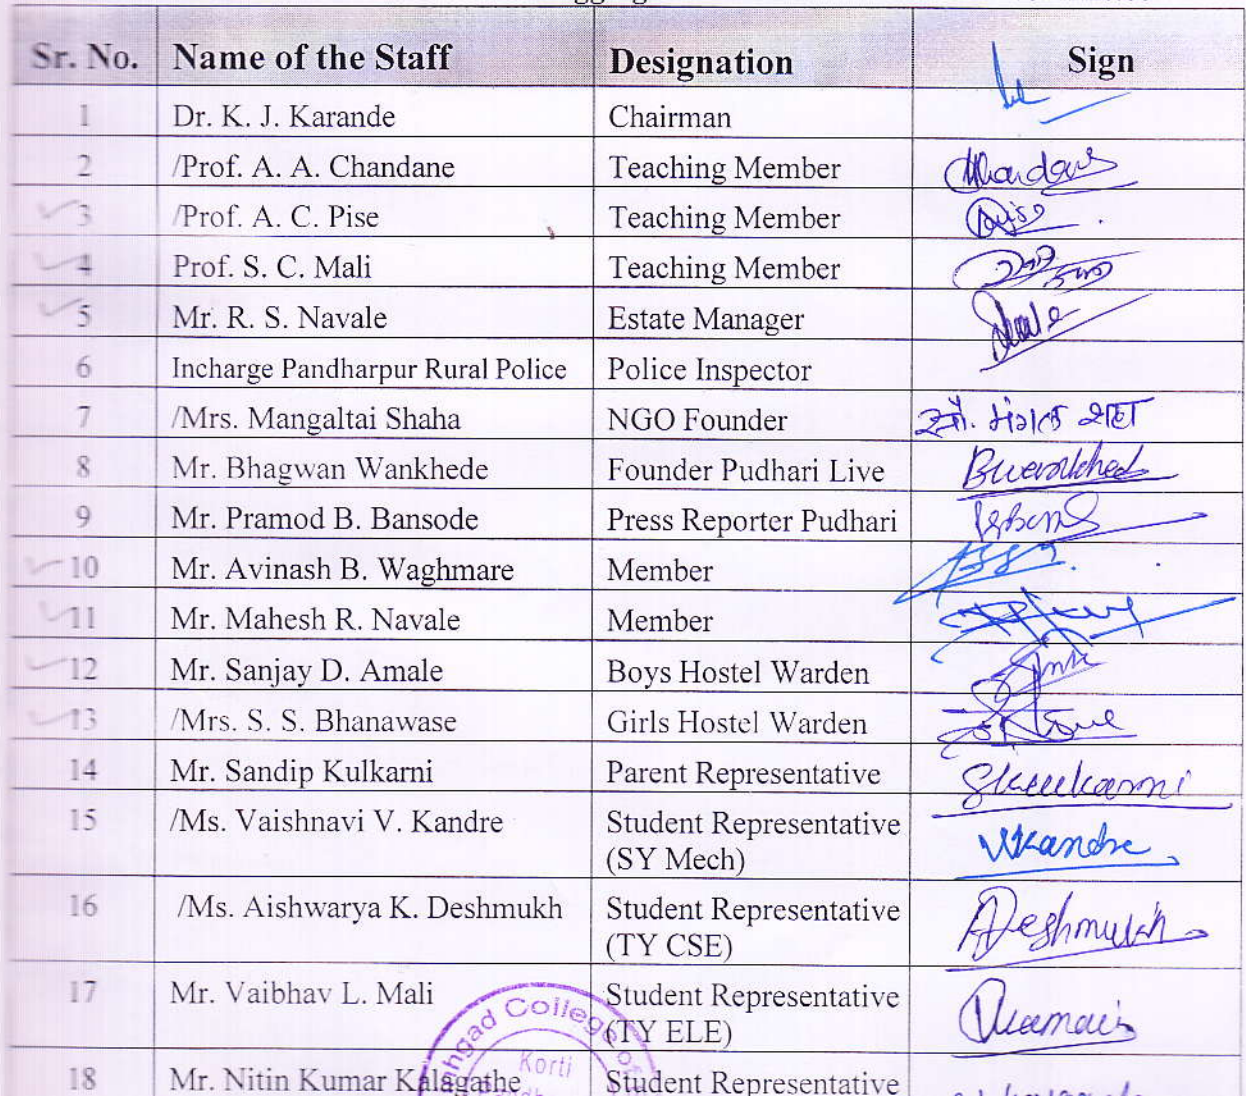 Sr. No. Name of the Staff Designation Sign
1 Dr. K. J. Karande Chairman
2 /Prof. A. A. Chandane Teaching Member
3 /Prof. A. C. Pise Teaching Member
4 Prof. S. C. Mali Teaching Member
5 Mr. R. S. Navale Estate Manager
6 Incharge Pandharpur Rural Police Police Inspector
7 /Mrs. Mangaltai Shaha NGO Founder सौ. मंगल शहा
8 Mr. Bhagwan Wankhede Founder Pudhari Live
9 Mr. Pramod B. Bansode Press Reporter Pudhari
10 Mr. Avinash B. Waghmare Member
11 Mr. Mahesh R. Navale Member
12 Mr. Sanjay D. Amale Boys Hostel Warden
13 /Mrs. S. S. Bhanawase Girls Hostel Warden
14 Mr. Sandip Kulkarni Parent Representative Skulkarni
15 /Ms. Vaishnavi V. Kandre Student Representative
(SY Mech) VKandre
16 /Ms. Aishwarya K. Deshmukh Student Representative
(TY CSE) ADeshmukh
17 Mr. Vaibhav L. Mali Student Representative
(TY ELE)
College of
Korti
18 Mr. Nitin Kumar Kalagathe Student Representative